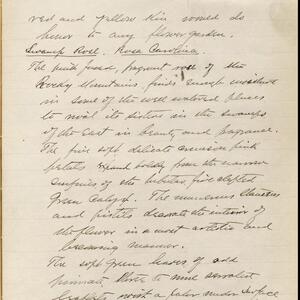 red and yellow his would do
honor to any flower garden.
Swamp Rose. Rosa Carolina.
The much prized, fragrant rose of the
Rocky Mountains finds enough moisture
in some of the well watered places
to rival its sisters in the swamps
of the East in beauty and fragrance.
The five soft delicate pink
petals expand boldly from the narrow
of the five slepted
Green Calyx. The numerous Stamens
and pistils decorate the interior of
the flower in a most artistic and
becoming manner.
The soft green leaves of odd
pinnate, three to nine serrulate
leaflets with a paler under surface